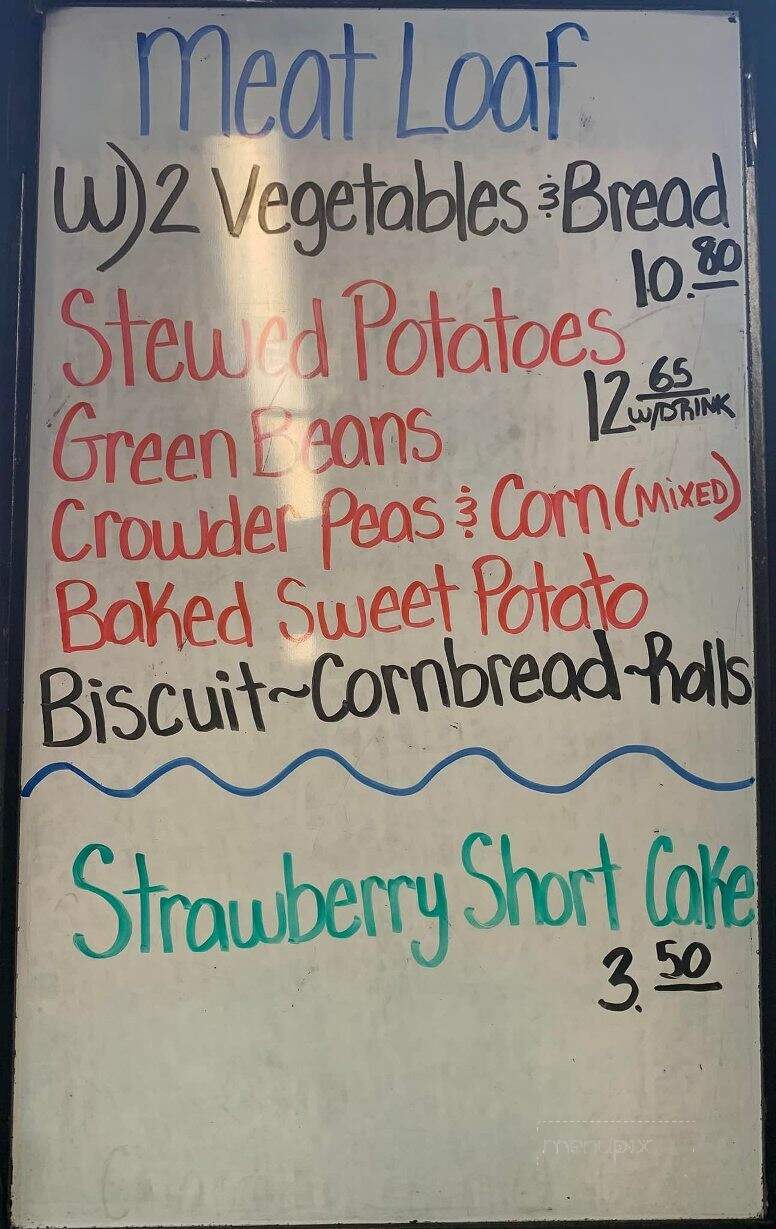 Meat Loaf
W) 2 Vegetables & Bread
10.80
Stewed Potatoes
12 65
W/DRINK
Green Beans
Crowder Peas & Corn (MIXED)
Baked Sweet Potato
Biscuit~Cornbread~Rolls
Strawberry Short Cake
3.50
menupix